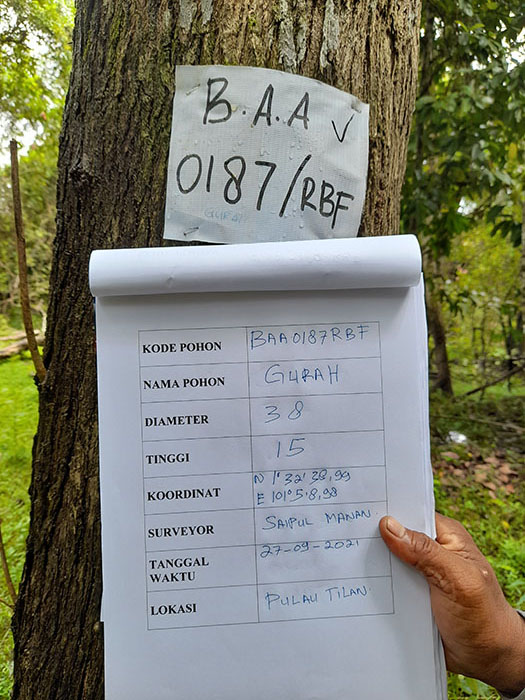 B.A.A ✓
0187/RBF
GURAH
KODE POHON BAA0187RBF
NAMA POHON GURAH
DIAMETER 38
TINGGI 15
KOORDINAT N 1°32'38,99
E 101°5'8,98
SURVEYOR SAIPUL MANAN
TANGGAL WAKTU 27-09-2021
LOKASI PULAU TILAN